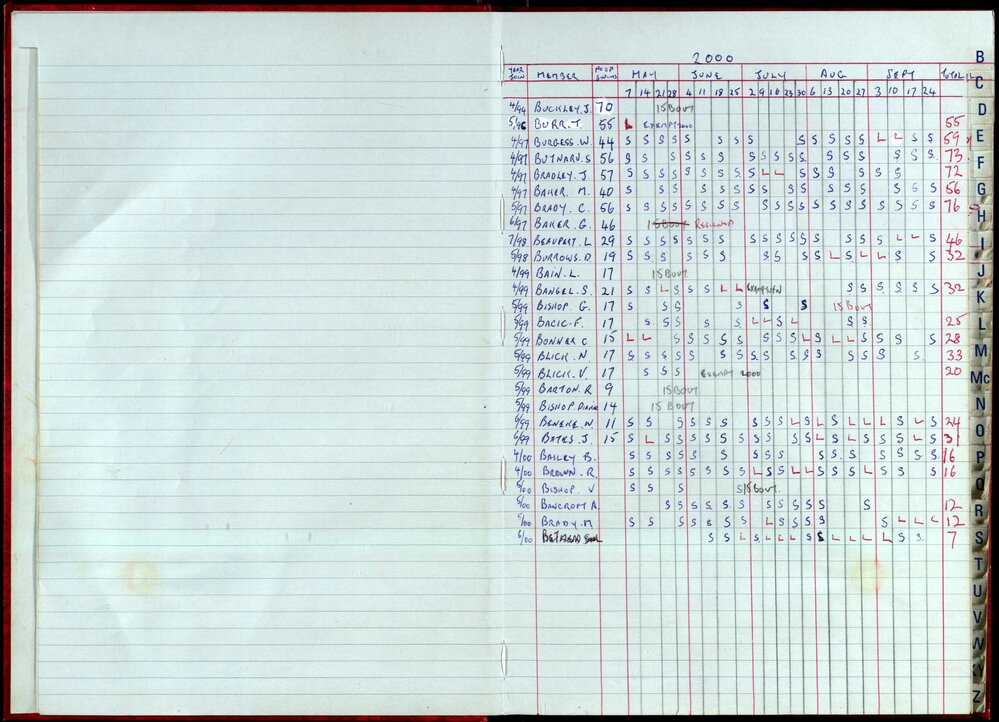 2000
YEAR JOIN MEMBER NO OF SWIMS MAY JUNE JULY AUG SEPT TOTAL
7 14 21 28 4 11 18 25 2 9 16 23 30 6 13 20 27 3 10 17 24
4/94 BUCKLEY. J. 70 15 BOUT
5/96 BURR. T. 55 L EXEMPT 2000 55
4/97 BURGESS. W. 44 S S S S S S S S S S S S S S L L S S 59
4/97 BUTNARU. S 56 S S S S S S S S S S S S S S S S S 73
4/97 BRADLEY. J 57 S S S S S S S S S L L S S S S S S 72
4/97 BAKER. M. 40 S S S S S S S S S S S S S S S S S 56
5/97 BRADY. C. 56 S S S S S S S S S S S S S S S S S S S S 76
6/97 BAKER. G. 46 15 BOUT RESIGNED
7/98 BEAUPERT. L 29 S S S S S S S S S S S S S S S L L S 46
5/98 BURROWS. D. 19 S S S S S S S S S S L S L L S 32
4/99 BAIN. L. 17 15 BOUT
4/99 BANGEL. S. 21 S S L S S S L L EXEMPTION S S S S S S 32
5/99 BISHOP. G. 17 S S S S S S 15 BOUT
5/99 BACIC. F. 17 S S S S S L L S L S S 25
5/99 BONNER C 15 L L S S S S S S S S L S L L S S S S 28
5/99 BLICK. N. 17 S S S S S S S S S S S S S S S S S 33
5/99 BLICK. V. 17 S S S EXEMPT 2000 20
5/99 BARTON. R 9 15 BOUT
5/99 BISHOP. DIANE 14 15 BOUT
6/99 BENEKE. W. 11 S S S S S S S S S L S L S L L L S L S 24
6/99 BATES. J. 15 S L S S S S S S S S S S L S L S S L S 31
4/00 BAILEY B. S S S S S S S S S S S S S S S 16
4/00 BROWN. R. S S S S S S S S L S S L L S S S L S S S 16
5/00 BISHOP V S S S S 15 BOUT
5/00 BANCROFT A. S S S S S S S S S S S S 12
5/00 BRADY. M S S S S S S S L S S S S S L L L 12
6/00 S S L S L L L S S L L L L S S 7
B
C
D
E
F
G
H
I
J
K
L
M
Mc
N
O
P
Q
R
S
T
U
V
W
XY
Z